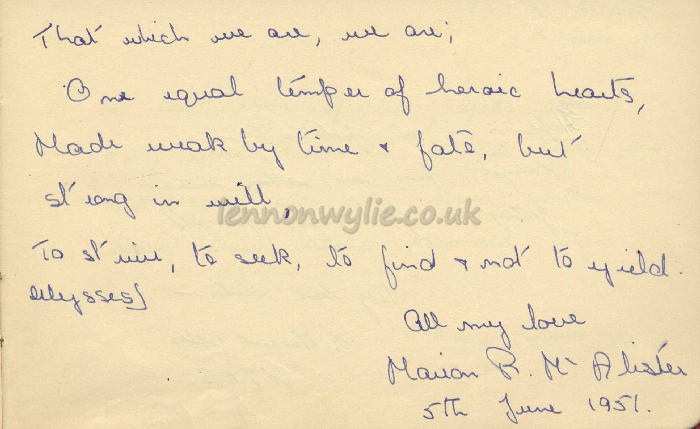 That which we are, we are;
One equal temper of heroic hearts,
Made weak by time & fate, but
strong in will,
lennonwylie.co.uk
To strive, to seek, to find & not to yield.
Ulysses}
All my love
Marion R. Mc Alister
5th June 1951.